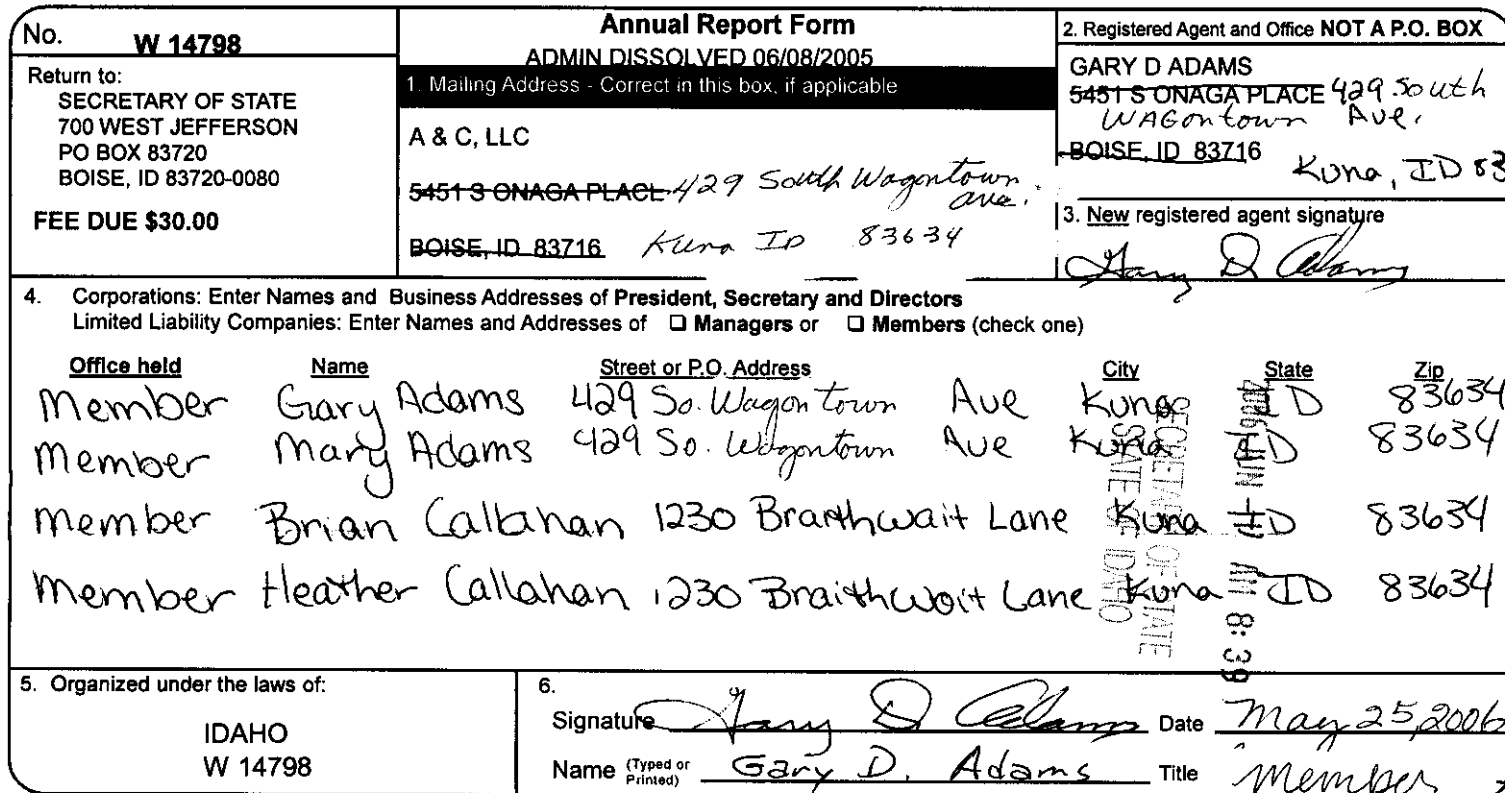 No. W 14798
Return to:
SECRETARY OF STATE
700 WEST JEFFERSON
PO BOX 83720
BOISE, ID 83720-0080
FEE DUE $30.00
Annual Report Form
ADMIN DISSOLVED 06/08/2005
1. Mailing Address - Correct in this box, if applicable
A & C, LLC
5451 S ONAGA PLACE 429 South Wagontown ave.
BOISE, ID 83716 Kuna ID 83634
2. Registered Agent and Office NOT A P.O. BOX
GARY D ADAMS
5451 S ONAGA PLACE 429 South
WAGontown Ave.
BOISE, ID 83716
Kuna, ID 83
3. New registered agent signature
Gary D Adams
4. Corporations: Enter Names and Business Addresses of President, Secretary and Directors
Limited Liability Companies: Enter Names and Addresses of ❑ Managers or ❑ Members (check one)
Office held Name Street or P.O. Address City State Zip
Member Gary Adams 429 So. Wagon town Ave Kuna ID 83634
Member Mary Adams 429 So. Wagontown Ave Kuna ID 83634
Member Brian Callahan 1230 Branthwait Lane Kuna ID 83634
Member Heather Callahan 1230 Braithwait Lane Kuna ID 83634
SECRETARY OF STATE
STATE OF IDAHO
AM 8:39
5. Organized under the laws of:
IDAHO
W 14798
6.
Signature Gary D Adams Date May 25, 2006
Name (Typed or Printed) Gary D. Adams Title Member